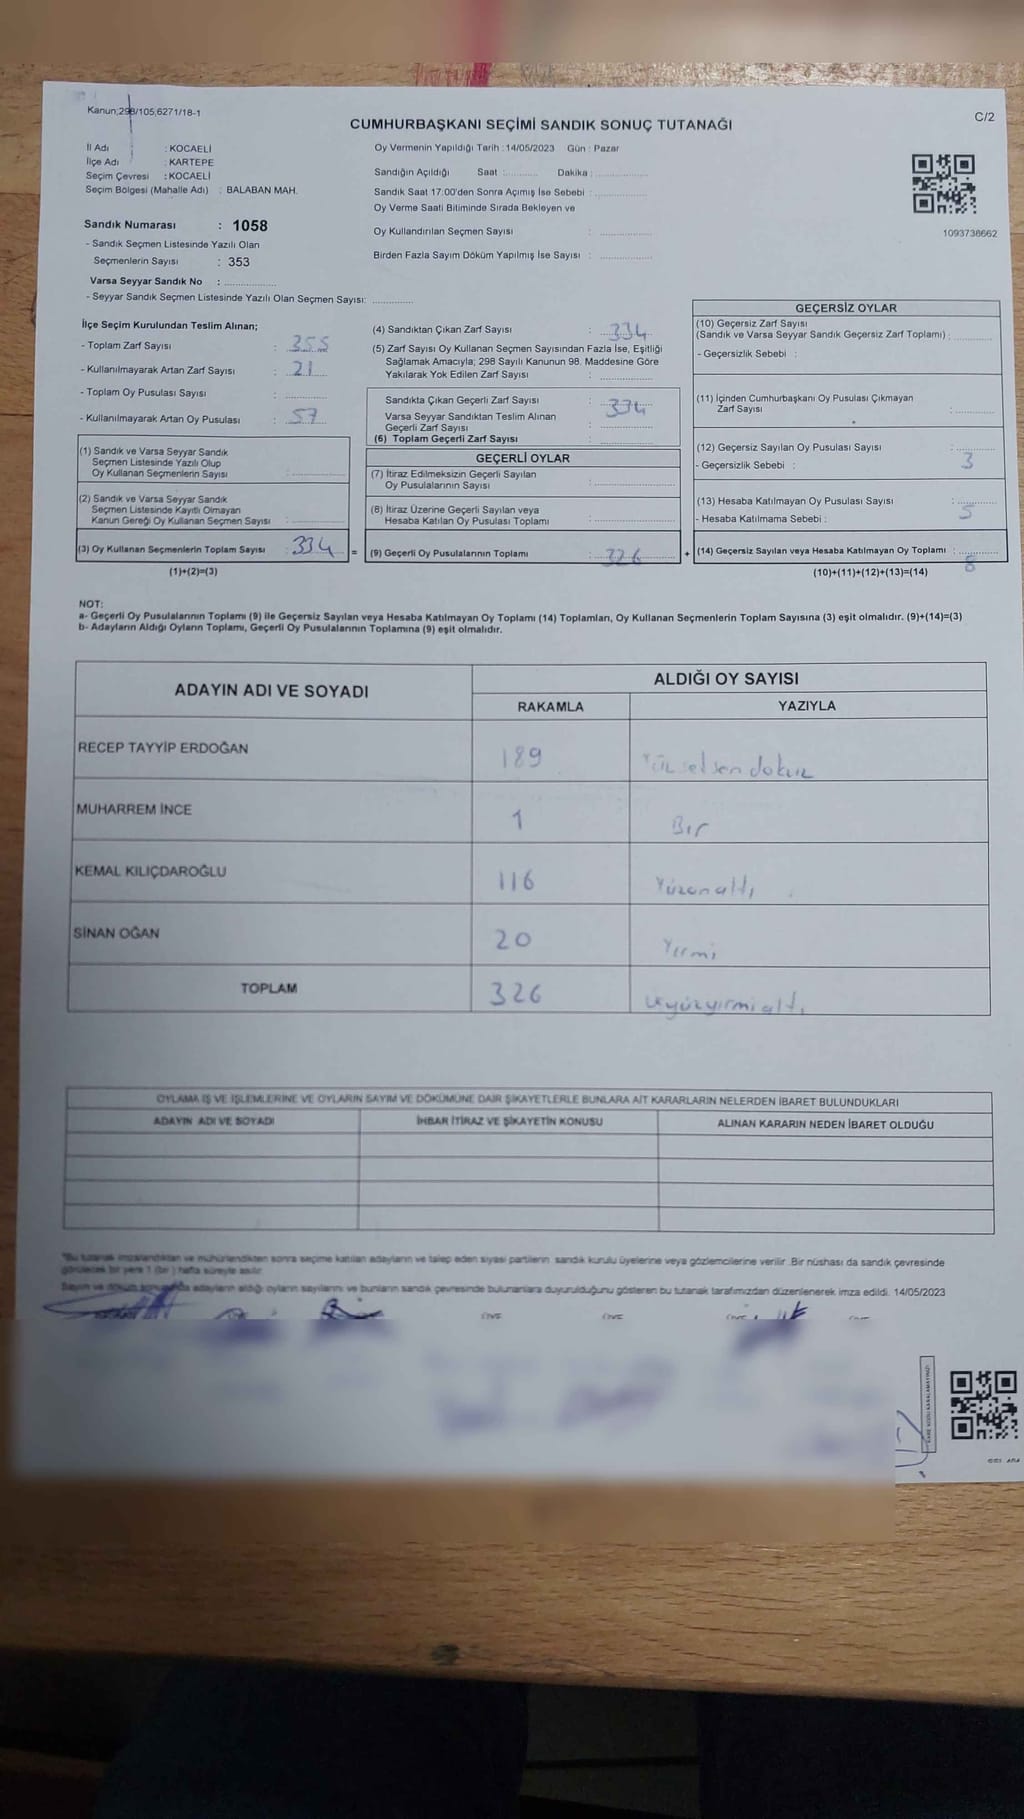 Kanun;298/105,6271/18-1
C/2
CUMHURBAŞKANI SEÇİMİ SANDIK SONUÇ TUTANAĞI
İl Adı : KOCAELİ
İlçe Adı : KARTEPE
Seçim Çevresi : KOCAELİ
Seçim Bölgesi (Mahalle Adı) : BALABAN MAH.
Oy Vermenin Yapıldığı Tarih : 14/05/2023 Gün : Pazar
Sandığın Açıldığı Saat :.......... Dakika :..............
Sandık Saat 17:00'den Sonra Açımış İse Sebebi :..............
Oy Verme Saati Bitiminde Sırada Bekleyen ve
Oy Kullandırılan Seçmen Sayısı : ..............
Birden Fazla Sayım Döküm Yapılmış İse Sayısı : ..............
1093736662
Sandık Numarası : 1058
- Sandık Seçmen Listesinde Yazılı Olan
Seçmenlerin Sayısı : 353
Varsa Seyyar Sandık No : ..............
- Seyyar Sandık Seçmen Listesinde Yazılı Olan Seçmen Sayısı: ...........
İlçe Seçim Kurulundan Teslim Alınan;
- Toplam Zarf Sayısı : 355
- Kullanılmayarak Artan Zarf Sayısı : 21
- Toplam Oy Pusulası Sayısı : ..........
- Kullanılmayarak Artan Oy Pusulası : 57
(1) Sandık ve Varsa Seyyar Sandık
Seçmen Listesinde Yazılı Olup
Oy Kullanan Seçmenlerin Sayısı : ..............
(2) Sandık ve Varsa Seyyar Sandık
Seçmen Listesinde Kayıtlı Olmayan
Kanun Gereği Oy Kullanan Seçmen Sayısı : ..............
(3) Oy Kullanan Seçmenlerin Toplam Sayısı : 334 =
(1)+(2)=(3)
(4) Sandıktan Çıkan Zarf Sayısı : 334
(5) Zarf Sayısı Oy Kullanan Seçmen Sayısından Fazla İse, Eşitliği
Sağlamak Amacıyla; 298 Sayılı Kanunun 98. Maddesine Göre
Yakılarak Yok Edilen Zarf Sayısı : ..............
Sandıkta Çıkan Geçerli Zarf Sayısı : 334
Varsa Seyyar Sandıktan Teslim Alınan
Geçerli Zarf Sayısı : ..............
(6) Toplam Geçerli Zarf Sayısı : ..............
GEÇERLİ OYLAR
(7) İtiraz Edilmeksizin Geçerli Sayılan
Oy Pusulalarının Sayısı : ..............
(8) İtiraz Üzerine Geçerli Sayılan veya
Hesaba Katılan Oy Pusulası Toplamı : ..............
(9) Geçerli Oy Pusulalarının Toplamı : 326 +
GEÇERSİZ OYLAR
(10) Geçersiz Zarf Sayısı
(Sandık ve Varsa Seyyar Sandık Geçersiz Zarf Toplamı) : ..........
- Geçersizlik Sebebi :
(11) İçinden Cumhurbaşkanı Oy Pusulası Çıkmayan
Zarf Sayısı : ..........
(12) Geçersiz Sayılan Oy Pusulası Sayısı : 3
- Geçersizlik Sebebi :
(13) Hesaba Katılmayan Oy Pusulası Sayısı : 5
- Hesaba Katılmama Sebebi :
(14) Geçersiz Sayılan veya Hesaba Katılmayan Oy Toplamı : 8
(10)+(11)+(12)+(13)=(14)
NOT:
a- Geçerli Oy Pusulalarının Toplamı (9) ile Geçersiz Sayılan veya Hesaba Katılmayan Oy Toplamı (14) Toplamları, Oy Kullanan Seçmenlerin Toplam Sayısına (3) eşit olmalıdır. (9)+(14)=(3)
b- Adayların Aldığı Oyların Toplamı, Geçerli Oy Pusulalarının Toplamına (9) eşit olmalıdır.
ADAYIN ADI VE SOYADI ALDIĞI OY SAYISI
RAKAMLA YAZIYLA
RECEP TAYYİP ERDOĞAN 189 Yüzseksendokuz
MUHARREM İNCE 1 Bir
KEMAL KILIÇDAROĞLU 116 Yüzonaltı
SİNAN OĞAN 20 Yirmi
TOPLAM 326 üçyüzyirmialtı
OYLAMA İŞ VE İŞLEMLERİNE VE OYLARIN SAYIM VE DÖKÜMÜNE DAİR ŞİKAYETLERLE BUNLARA AİT KARARLARIN NELERDEN İBARET BULUNDUKLARI
ADAYIN ADI VE SOYADI İHBAR İTİRAZ VE ŞİKAYETİN KONUSU ALINAN KARARIN NEDEN İBARET OLDUĞU
*Bu tutanak imzalandıktan ve mühürlendikten sonra seçime katılan adayların ve talep eden siyasi partilerin sandık kurulu üyelerine veya gözlemcilerine verilir. Bir nüshası da sandık çevresinde
görülecek bir yere 1 (bir) hafta süreyle asılır.
Sayım ve döküm sonucunda adayların aldığı oyların sayılarını ve bunların sandık çevresinde bulunanlara duyurulduğunu gösteren bu tutanak tarafımızdan düzenlenerek imza edildi. 14/05/2023
ÜYE ÜYE ÜYE ÜYE
KARE KODU KARALAMAYINIZ!